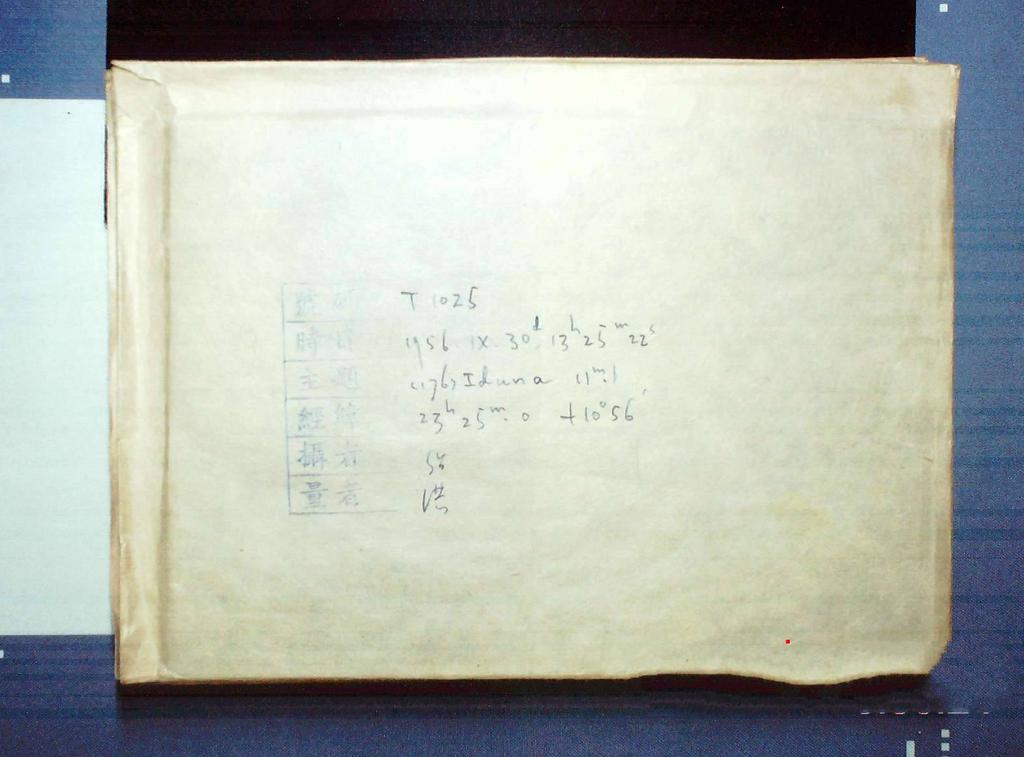 號 T 1025
時日 1956 IX 30ᵈ 13ʰ 25ᵐ 22ˢ
主題 (176) Iduna 11ᵐ.1
經緯 23ʰ 25ᵐ.0 +10°56′
攝者
量者 洪